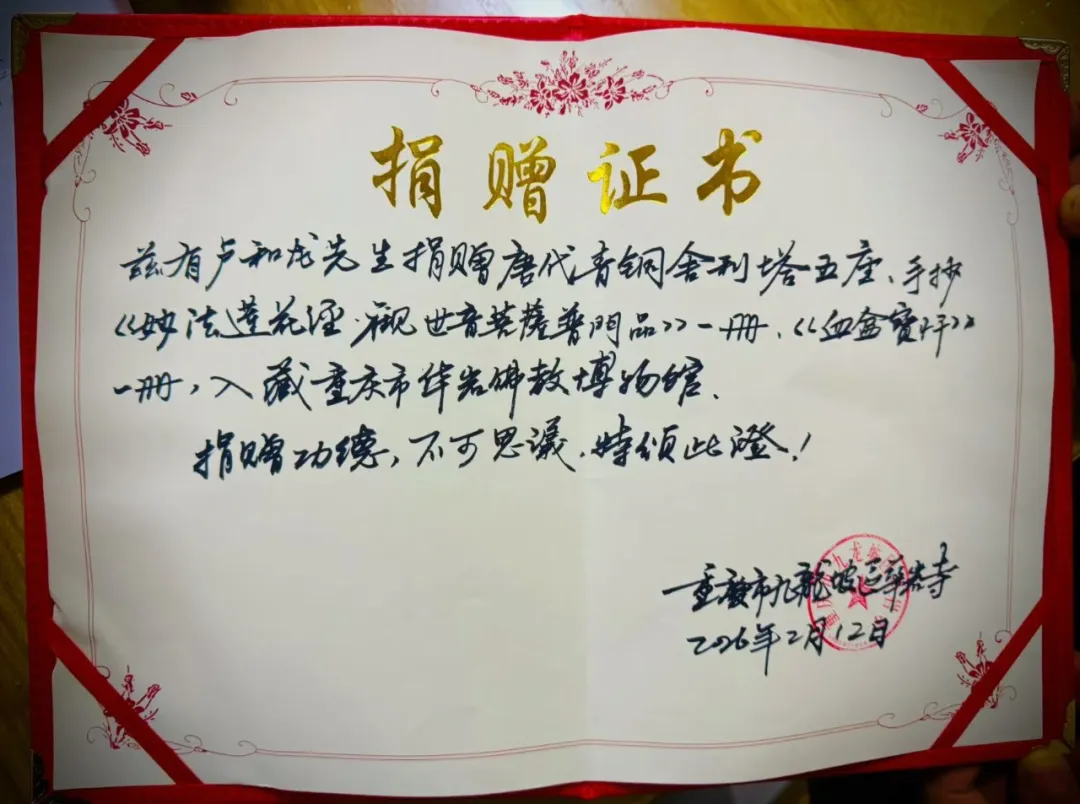 捐赠证书
兹有卢和龙先生捐赠唐代青铜舍利塔五座、手抄
《妙法莲花经·观世音菩萨普門品》一册、《血盆寳忏》
一册，入藏重庆市华岩佛教博物馆.
捐赠功德，不可思议.特颁此證！
重慶市九龍坡区華岩寺
2026年2月12日